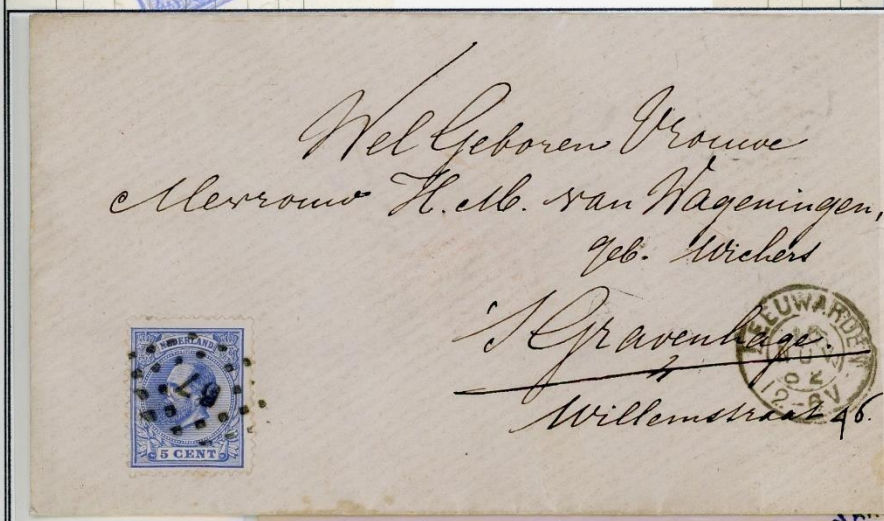 Wel Geboren Vrouwe
Mevrouw H. M. van Wageningen,
geb. Wichers
's Gravenhage.
Willemstraat 46.
NEDERLAND
5 CENT
67
LEEUWARDEN
82
12-6V